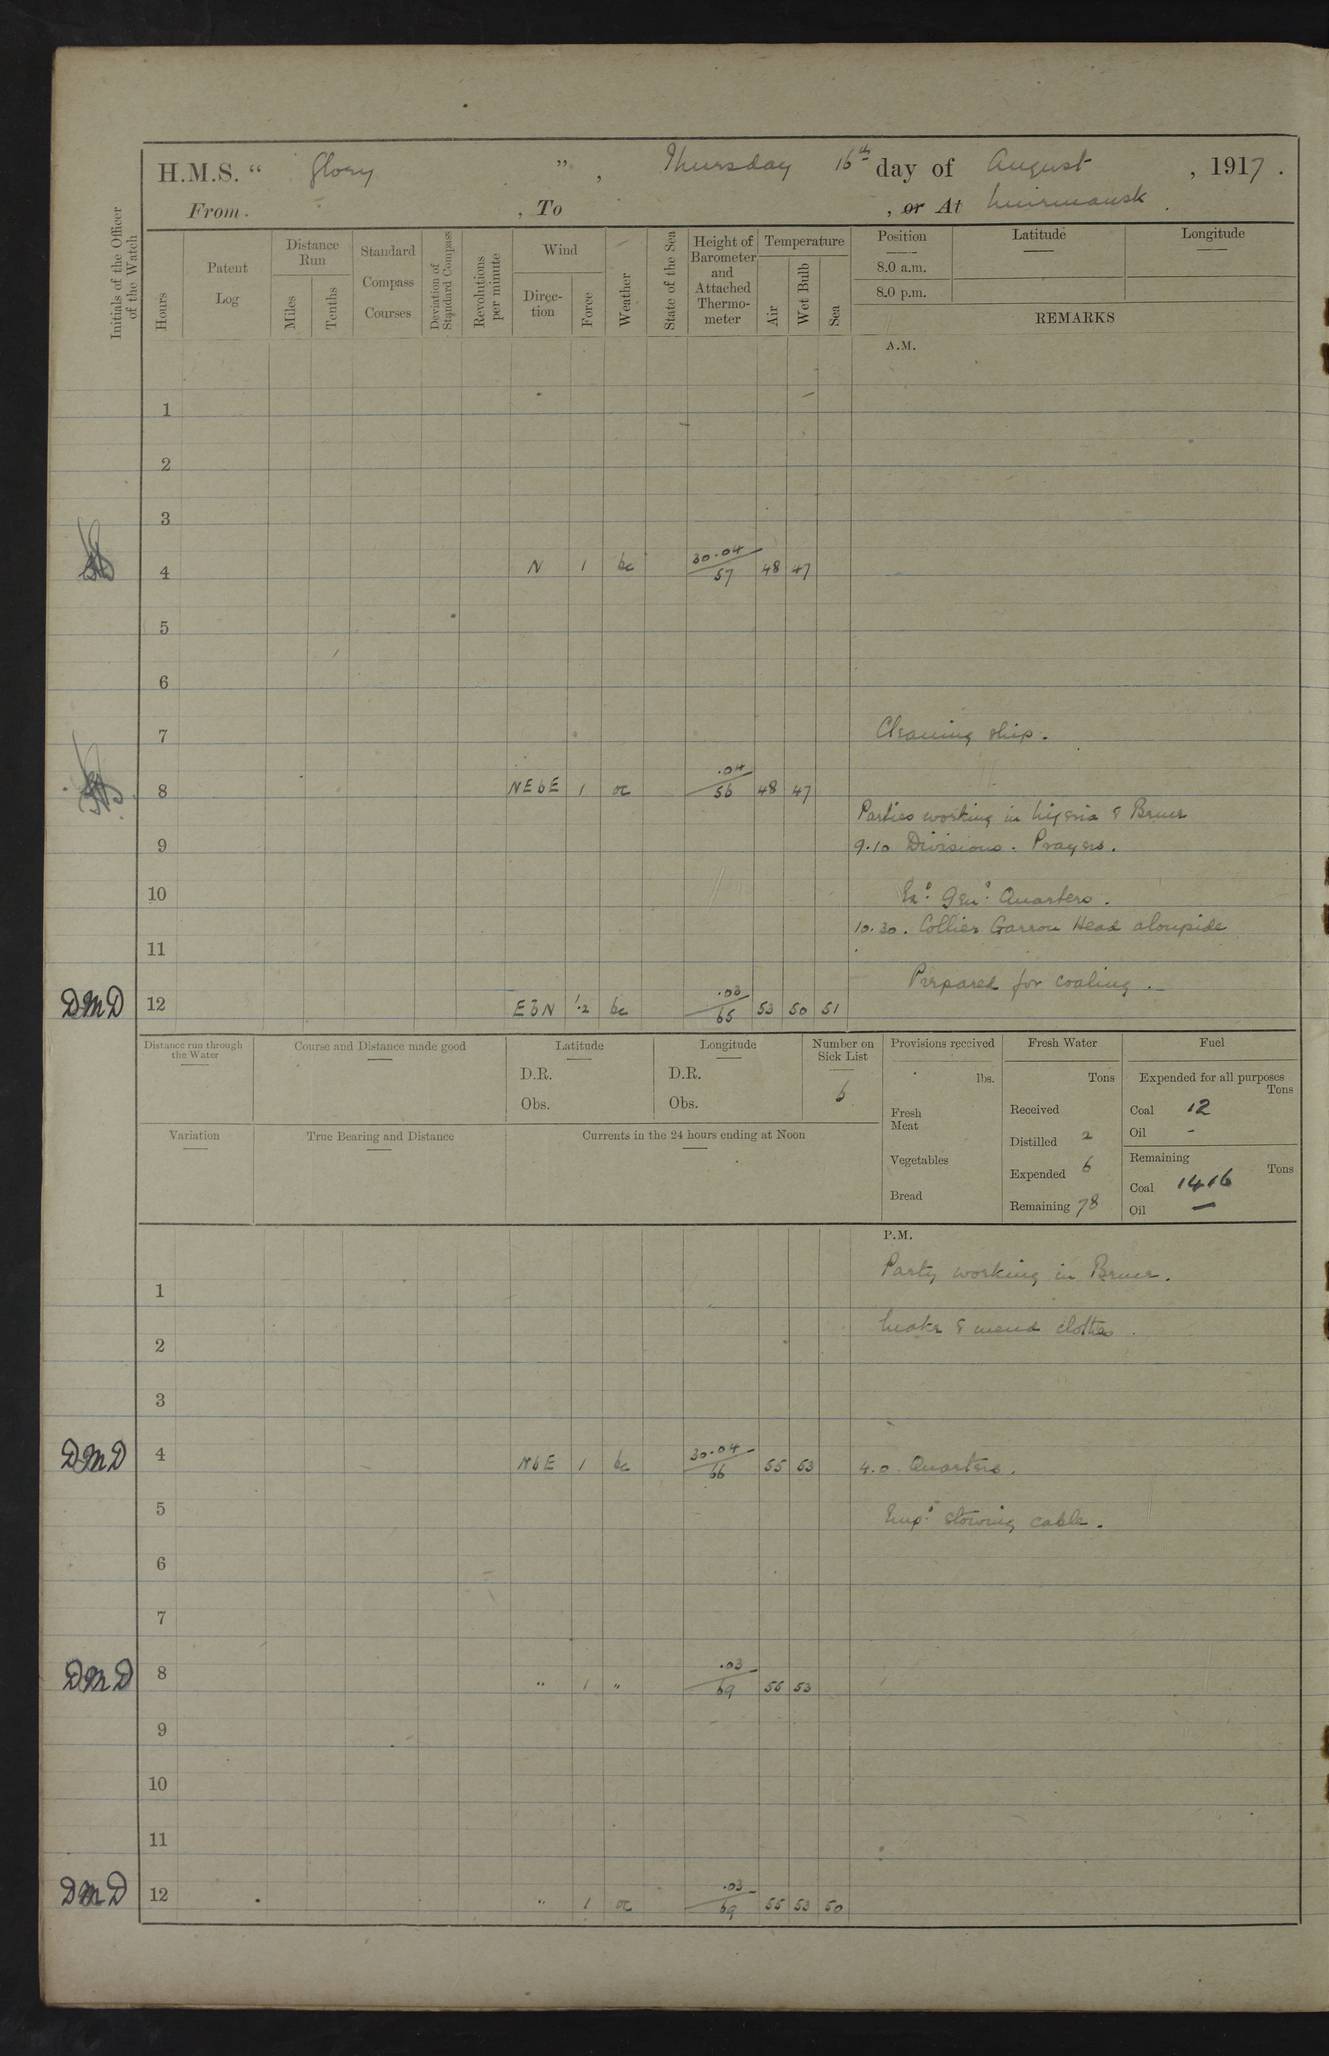 H.M.S. “ Glory ” , Thursday 16th day of August , 1917 .
From , To , or At Muirmansk .
Initials of the Officer of the Watch
Hours
Patent Log
Distance Run
Miles
Tenths
Standard Compass Courses
Deviation of Standard Compass
Revolutions per minute
Wind
Direc-tion
Force
Weather
State of the Sea
Height of Barometer and Attached Thermo-meter
Temperature
Air
Wet Bulb
Sea
Position
8.0 a.m.
8.0 p.m.
Latitude
Longitude
REMARKS
A.M.
1
2
3
4 N 1 bc 30.04/57 48 47
5
6
7 Cleaning ship.
8 NEbE 1 oc .04/56 48 47
Parties working in Nigeria & Bruer
9 9.10 Divisions. Prayers.
10 Ex: Gen: Quarters.
10.30. Collier Garron Head alongside
11
Prepared for coaling.
DMD 12 1.2 bc .03/65 53 50 51
Distance run through the Water
Course and Distance made good
Latitude
D.R.
Obs.
Longitude
D.R.
Obs.
Number on Sick List
6
Variation
True Bearing and Distance
Currents in the 24 hours ending at Noon
Provisions received
lbs.
Fresh Meat
Vegetables
Bread
Fresh Water
Tons
Received
Distilled 2
Expended 6
Remaining 78
Fuel
Expended for all purposes
Tons
Coal 12
Oil -
Remaining
Tons
Coal 1416
Oil —
P.M.
Party working in Bruer.
1
Make & mend clothes.
2
3
DMD 4 NbE 1 bc 30.04/66 55 53 4.0 Quarters.
5 Emp: stowing cable.
6
7
DMD 8 " 1 " .03/69 56 53
9
10
11
DMD 12 " 1 oc .03/69 55 53 50